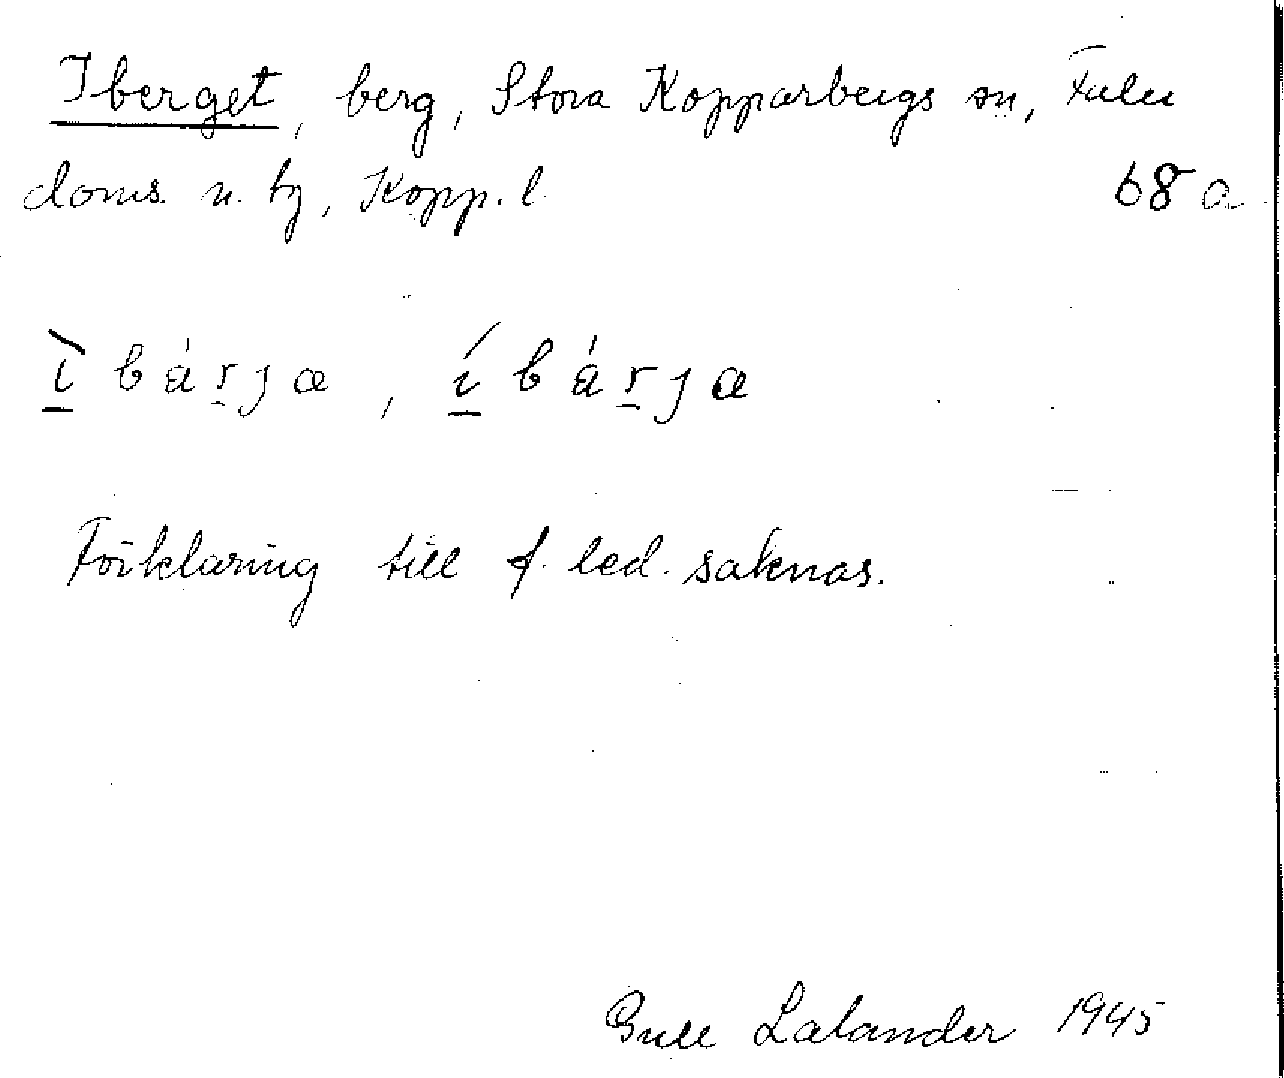 Iberget, berg, Stora Kopparbergs sn, Falu
doms. n. tg, Kopp. l. 68 a
ì̱ b á ṟ j a , í̱ b á ṟ j a
Förklaring till f. led. saknas.
Gull Lalander 1945